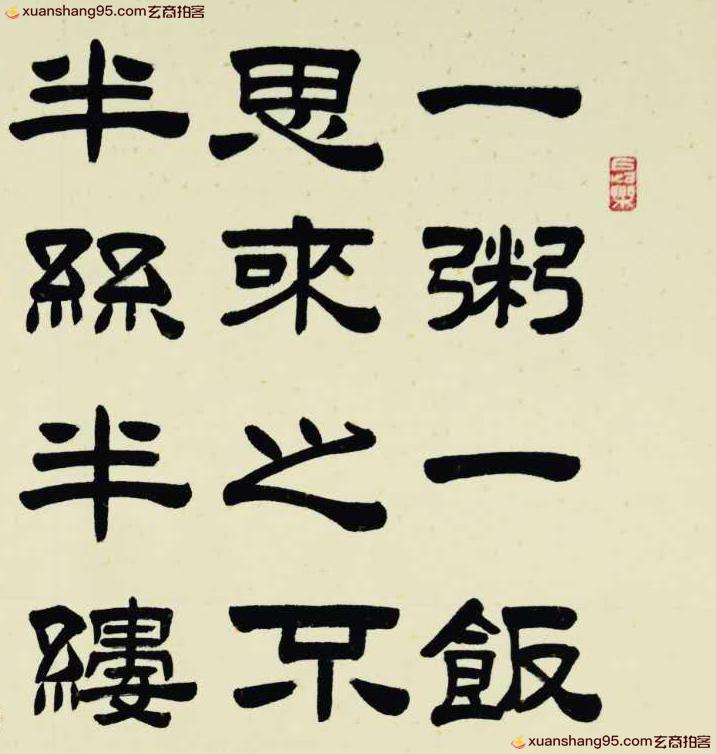 xuanshang95.com玄商拍客
一粥一飯
思來之不
半絲半縷
xuanshang95.com玄商拍客